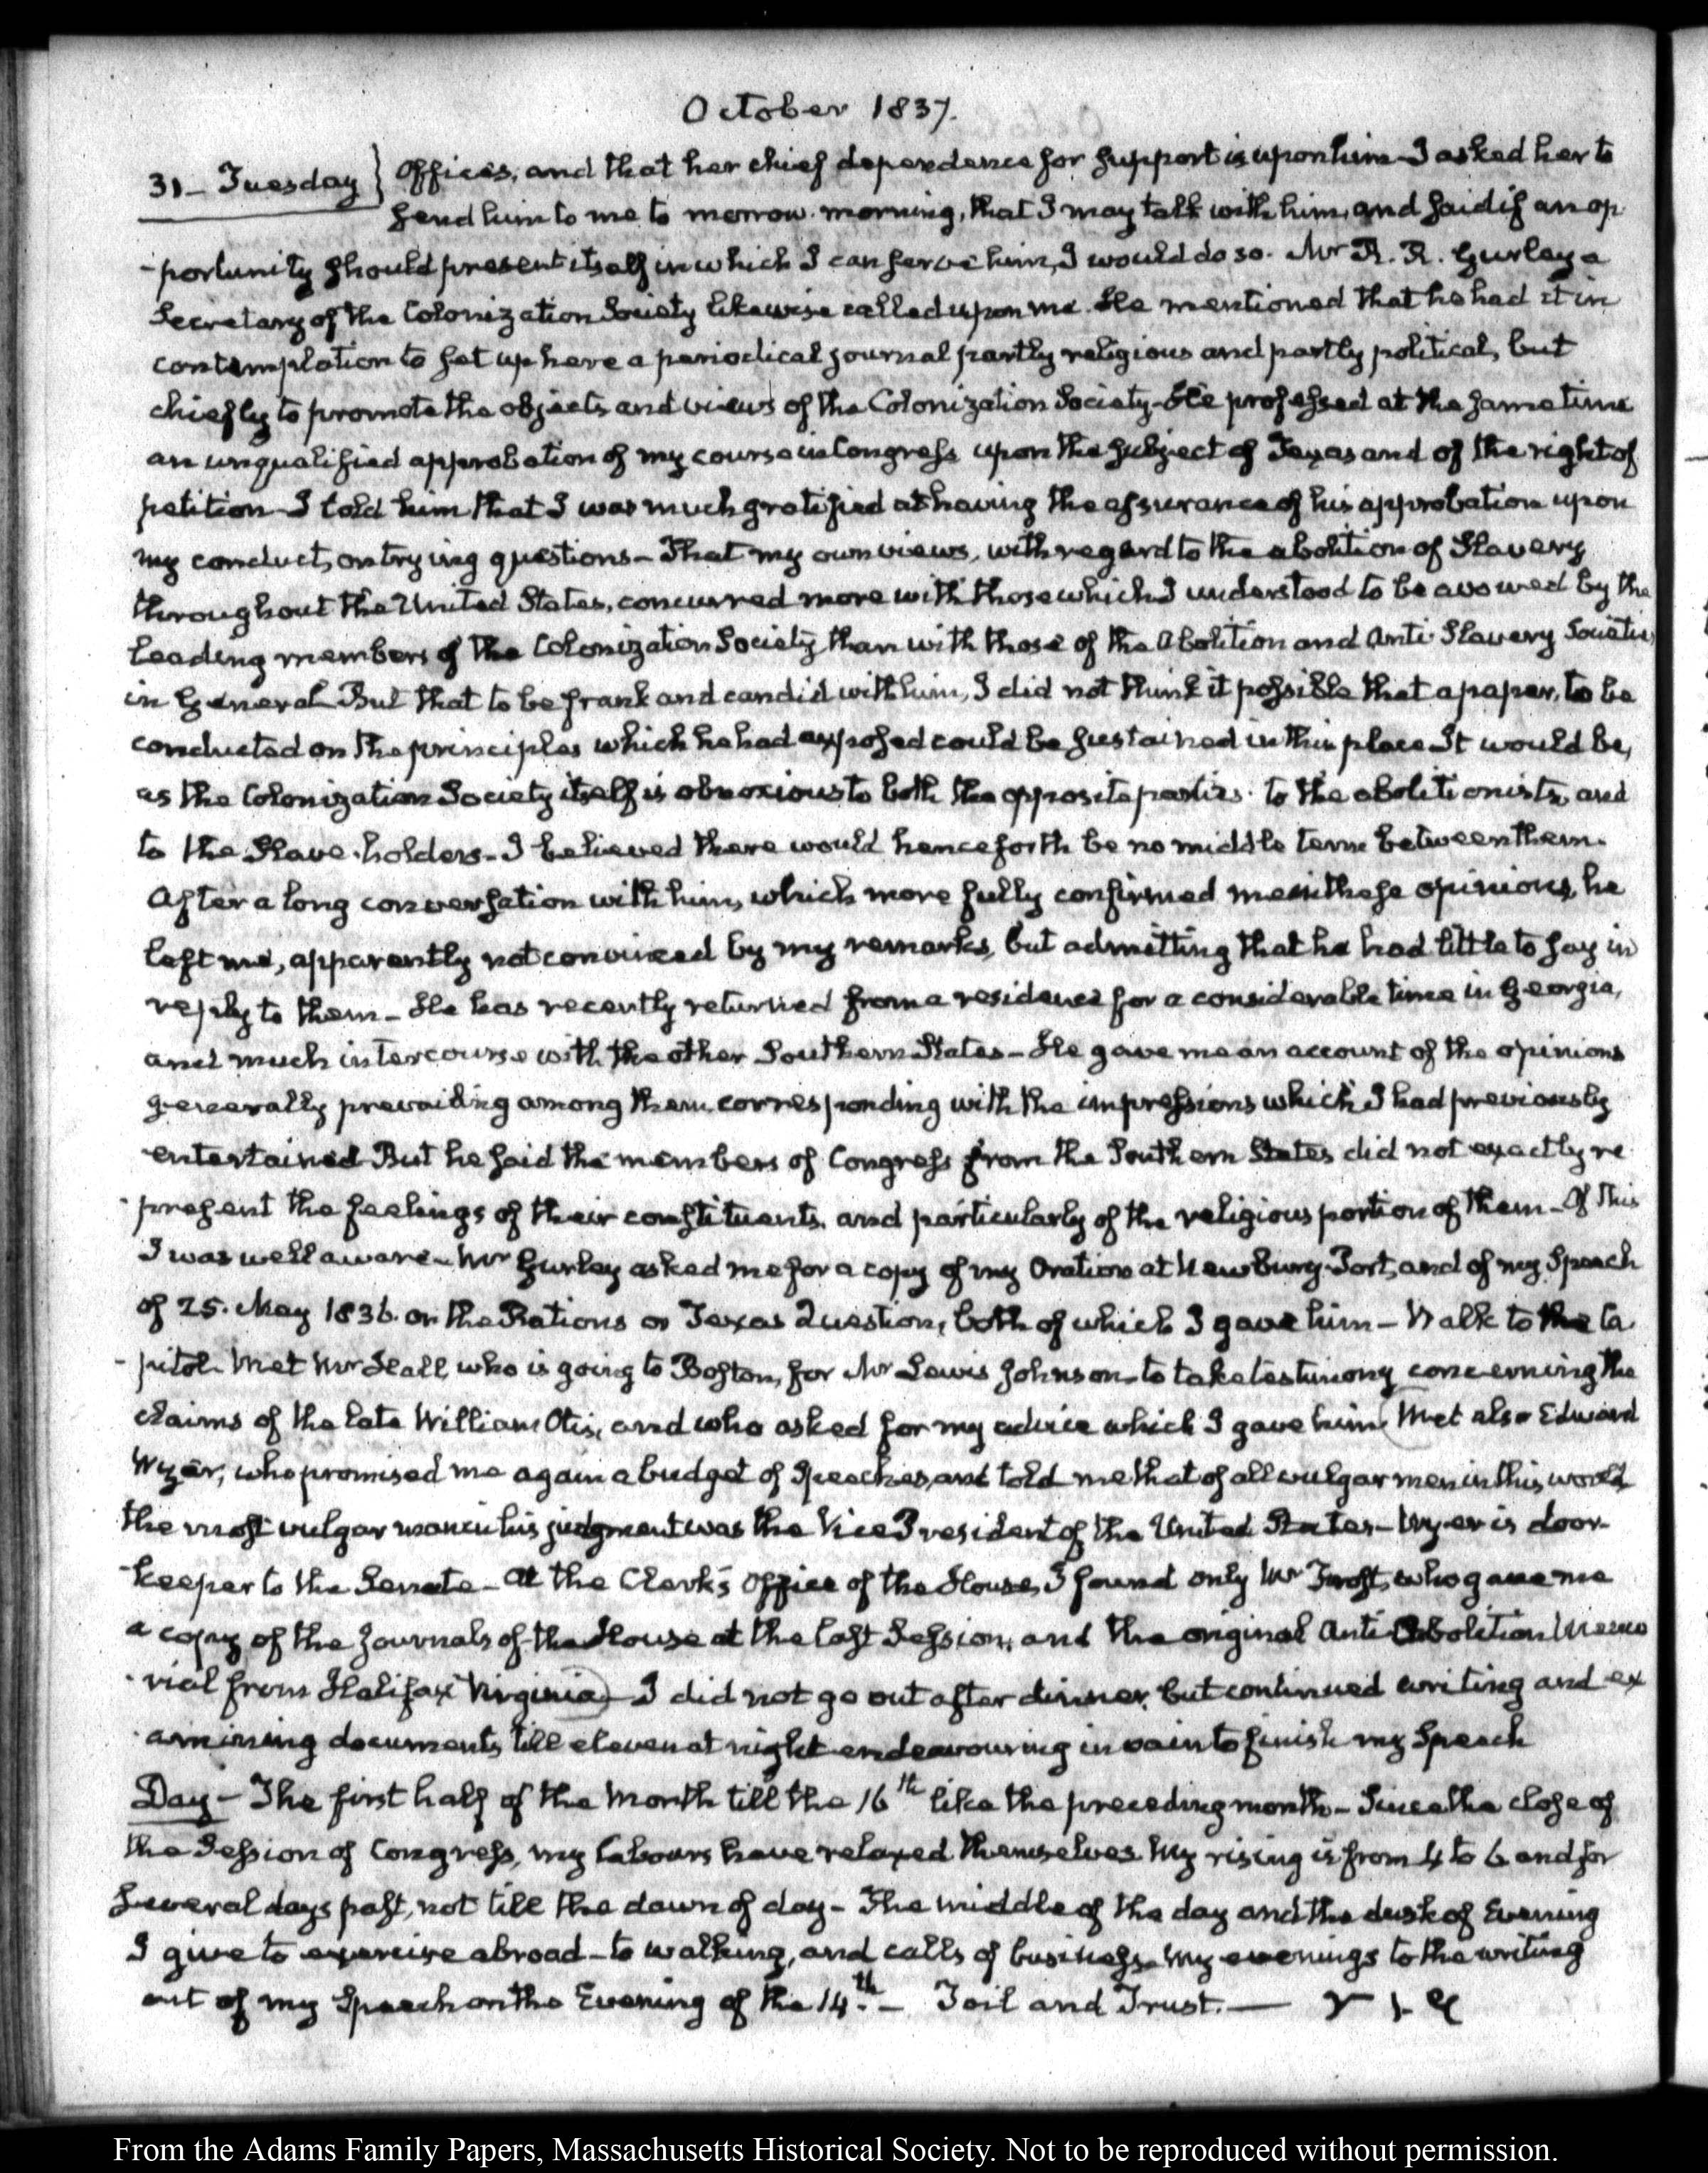 October 1837.
31 – Tuesday } Offices, and that her chief dependence for support is upon him – I asked her to
send him to me to morrow morning, that I may talk with him, and said if an op
-portunity should present itself in which I can serve him, I would do so. Mr R. R. Gurley a
Secretary of the Colonization Society likewise called upon me. He mentioned that he had it in
contemplation to set up here a periodical journal partly religious and partly political, but
chiefly to promote the objects and views of the Colonization Society – He professed at the same time
an unqualified approbation of my course in Congress upon the subject of Texas and of the right of
petition – I told him that I was much gratified at having the assurance of his approbation upon
my conduct, on trying questions – That my own views, with regard to the abolition of Slavery
throughout the United States, concurred more with those which I understood to be avowed by the
leading members of the Colonization Society, than with those of the Abolition and Anti-Slavery Societies
in General – But that to be frank and candid with him, I did not think it possible that a paper, to be
conducted on the principles which he had exposed could be sustained in this place It would be,
as the Colonization Society itself is obnoxious to both the opposite parties. to the abolitionists, and
to the Slave-holders – I believed there would henceforth be no middle term between them.
After a long conversation with him, which more fully confirmed me in these opinions, he
left me, apparently not convinced by my remarks, but admitting that he had little to say in
reply to them – He has recently returned from a residence for a considerable time in Georgia,
and much intercourse with the other Southern States – He gave me an account of the opinions
generally prevailing among them, corresponding with the impressions which I had previously
entertained But he said the members of Congress from the Southern States did not exactly re
-present the feelings of their constituents, and particularly of the religious portion of them – Of this
I was well aware – Mr Gurley asked me for a copy of my Oration at Newbury-Port, and of my Speech
of 25. May 1836. on the Rations or Texas Question, both of which I gave him – Walk to the Ca
-pitol. Met Mr Hall who is going to Boston, for Mr Lewis Johnson – to take testimony concerning the
claims of the late William Otis, and who asked for my advice which I gave him (Met also Edward
Wyer, who promised me again a budget of Speeches, and told me that of all vulgar men in this world
the most vulgar man in his judgment was the Vice President of the United States – Wyer is door-
-keeper to the Senate – At the Clerk's Office of the House, I found only Mr Frost, who gave me
a copy of the Journals of the House at the last Session, and the original Anti-Abolition Memo
-rial from Halifax Virginia) – I did not go out after dinner, but continued writing and ex
-amining documents, till eleven at night endeavouring in vain to finish my Speech
Day – The first half of the Month till the 16th like the preceding month – Since the close of
the Session of Congress, my labours have relaxed themselves My rising is from 4 to 6 and for
several days past, not till the dawn of day – The middle of the day and the dusk of Evening
I give to exercise abroad – to walking, and calls of business – My evenings to the writing
out of my Speech on the Evening of the 14th. – Toil and Trust. —
From the Adams Family Papers, Massachusetts Historical Society. Not to be reproduced without permission.